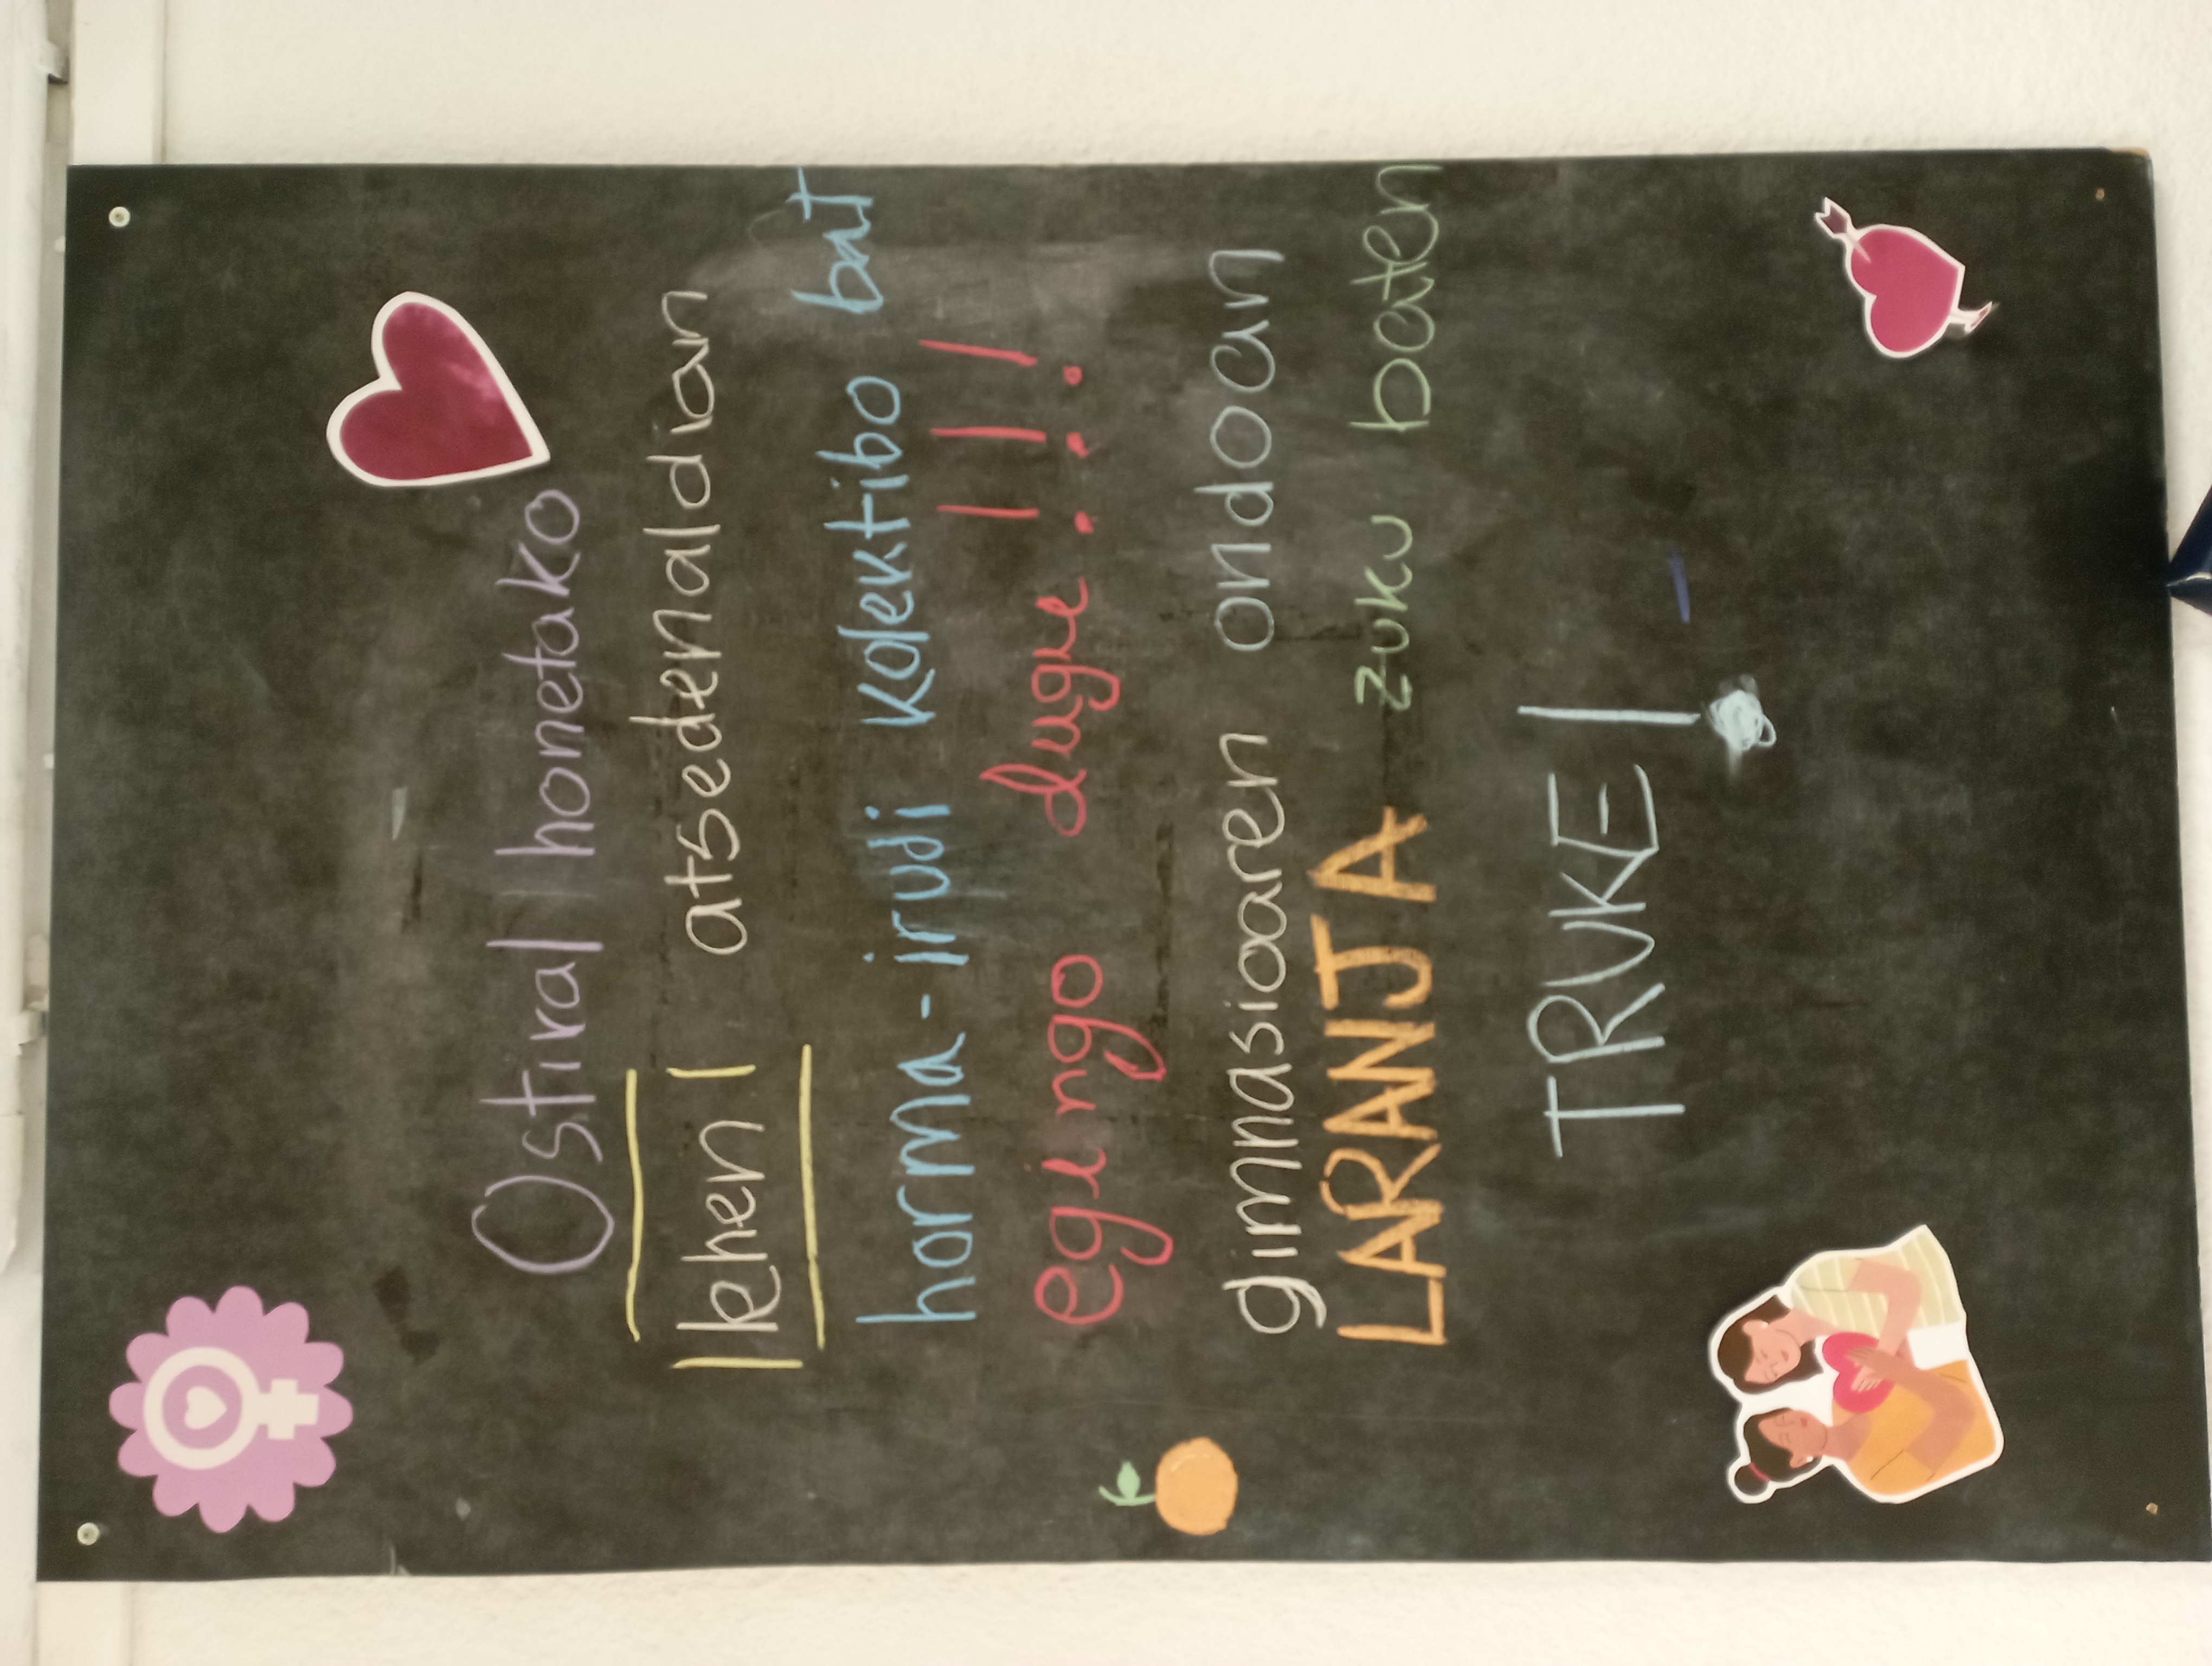 Ostiral honetako
lehen atsedenaldian
horma-irudi kolektibo bat
egingo dugu!!!
gimnasioaren ondoan
LARANJA zuku baten
TRUKE!